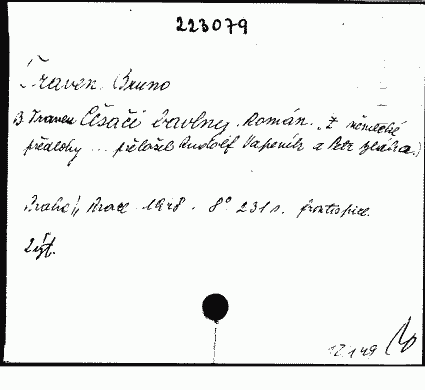 223079
Traven Bruno
B. Traven Česači bavlny. Román. (Z německé
předlohy ... přeložil Rudolf Vápeník a Petr
Praha, Práce 1948. 8° 231 s. frontispice.
2 výt.
12 1 49